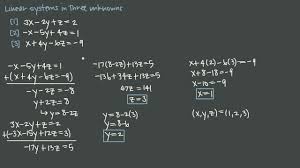 Linear systems in Three unknowns
[1] 3x-2y+z=2
[2] -x-5y+4z=1
[3] x+4y-6z=-9
-x-5y+4z=1
+(x+4y-6z=-9)
-y-2z=-8
y+2z=8
↳ y=8-2z
3x-2y+z=2
+(-3x-15y+12z=3)
-17y+13z=5
-17(8-2z)+13z=5
-136+34z+13z=5
47z=141
z=3
y=8-2(3)
y=8-6
y=2
x+4(2)-6(3)=-9
x+8-18=-9
x-10=-9
x=1
(x,y,z)=(1,2,3)